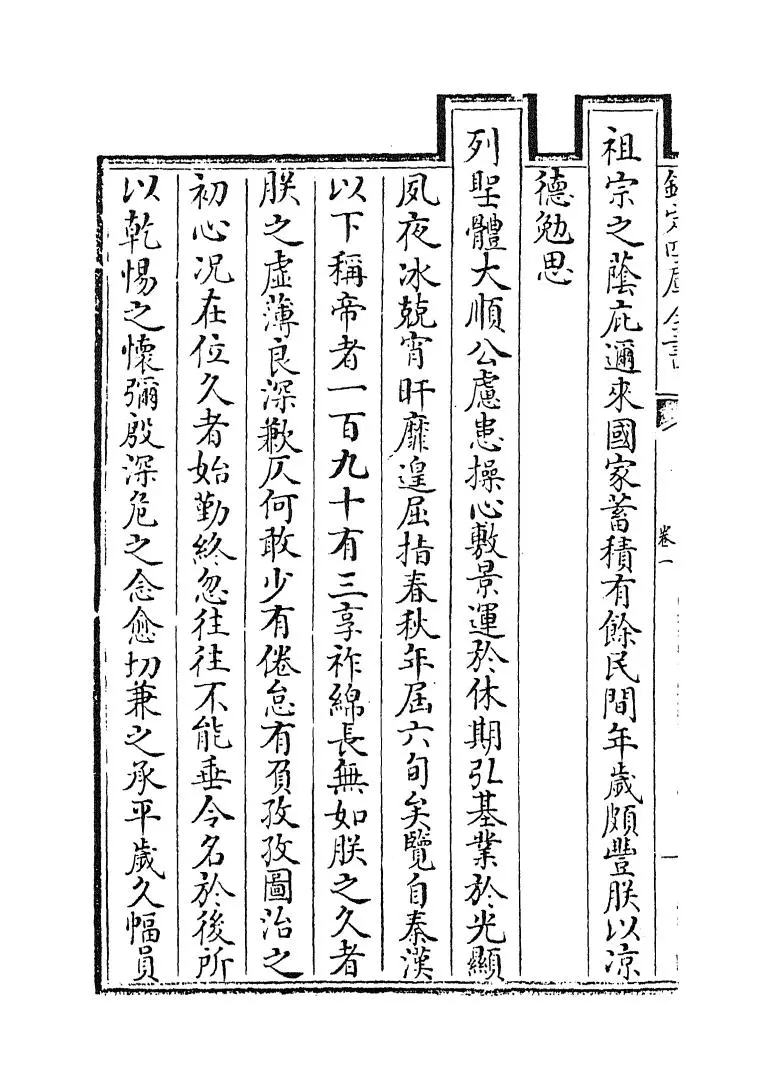 欽定四庫全書
卷一
祖宗之蔭庇邇來國家蓄積有餘民間年歲頗豐朕以凉
德勉思
列聖體大順公慮患操心敷景運於休期弘基業於光顯
夙夜冰兢宵旰靡遑屈指春秋年屆六旬矣覽自秦漢
以下稱帝者一百九十有三享祚綿長無如朕之久者
朕之虛薄良深歉仄何敢少有倦怠有負孜孜圖治之
初心况在位久者始勤終忽往往不能垂令名於後所
以乾惕之懷彌殷深危之念愈切兼之承平歲久幅員